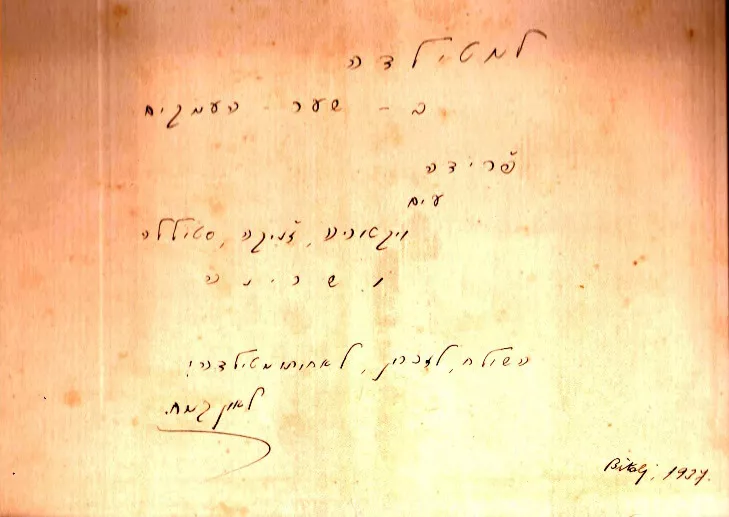 למטילדה
ב - שער - העמקים
פרידה
עים
ויקטוריה, ז'ניקה, סטוללה
ו ש ר י נ ה
השולח, לזכרון, לאחותו מטילדה!
לאון קמחי.
Bitolj, 1937.